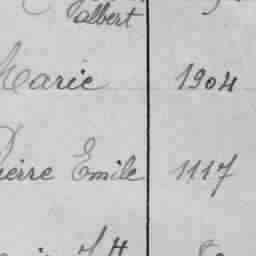 albert
Marie 1904
Pierre Emile 1117